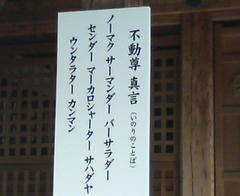 不動尊 真言(いのりのことば)
ノーマク サーマンダー バーサラダー
センダー マーカロシャーター サハダヤ
ウンタラター カンマン